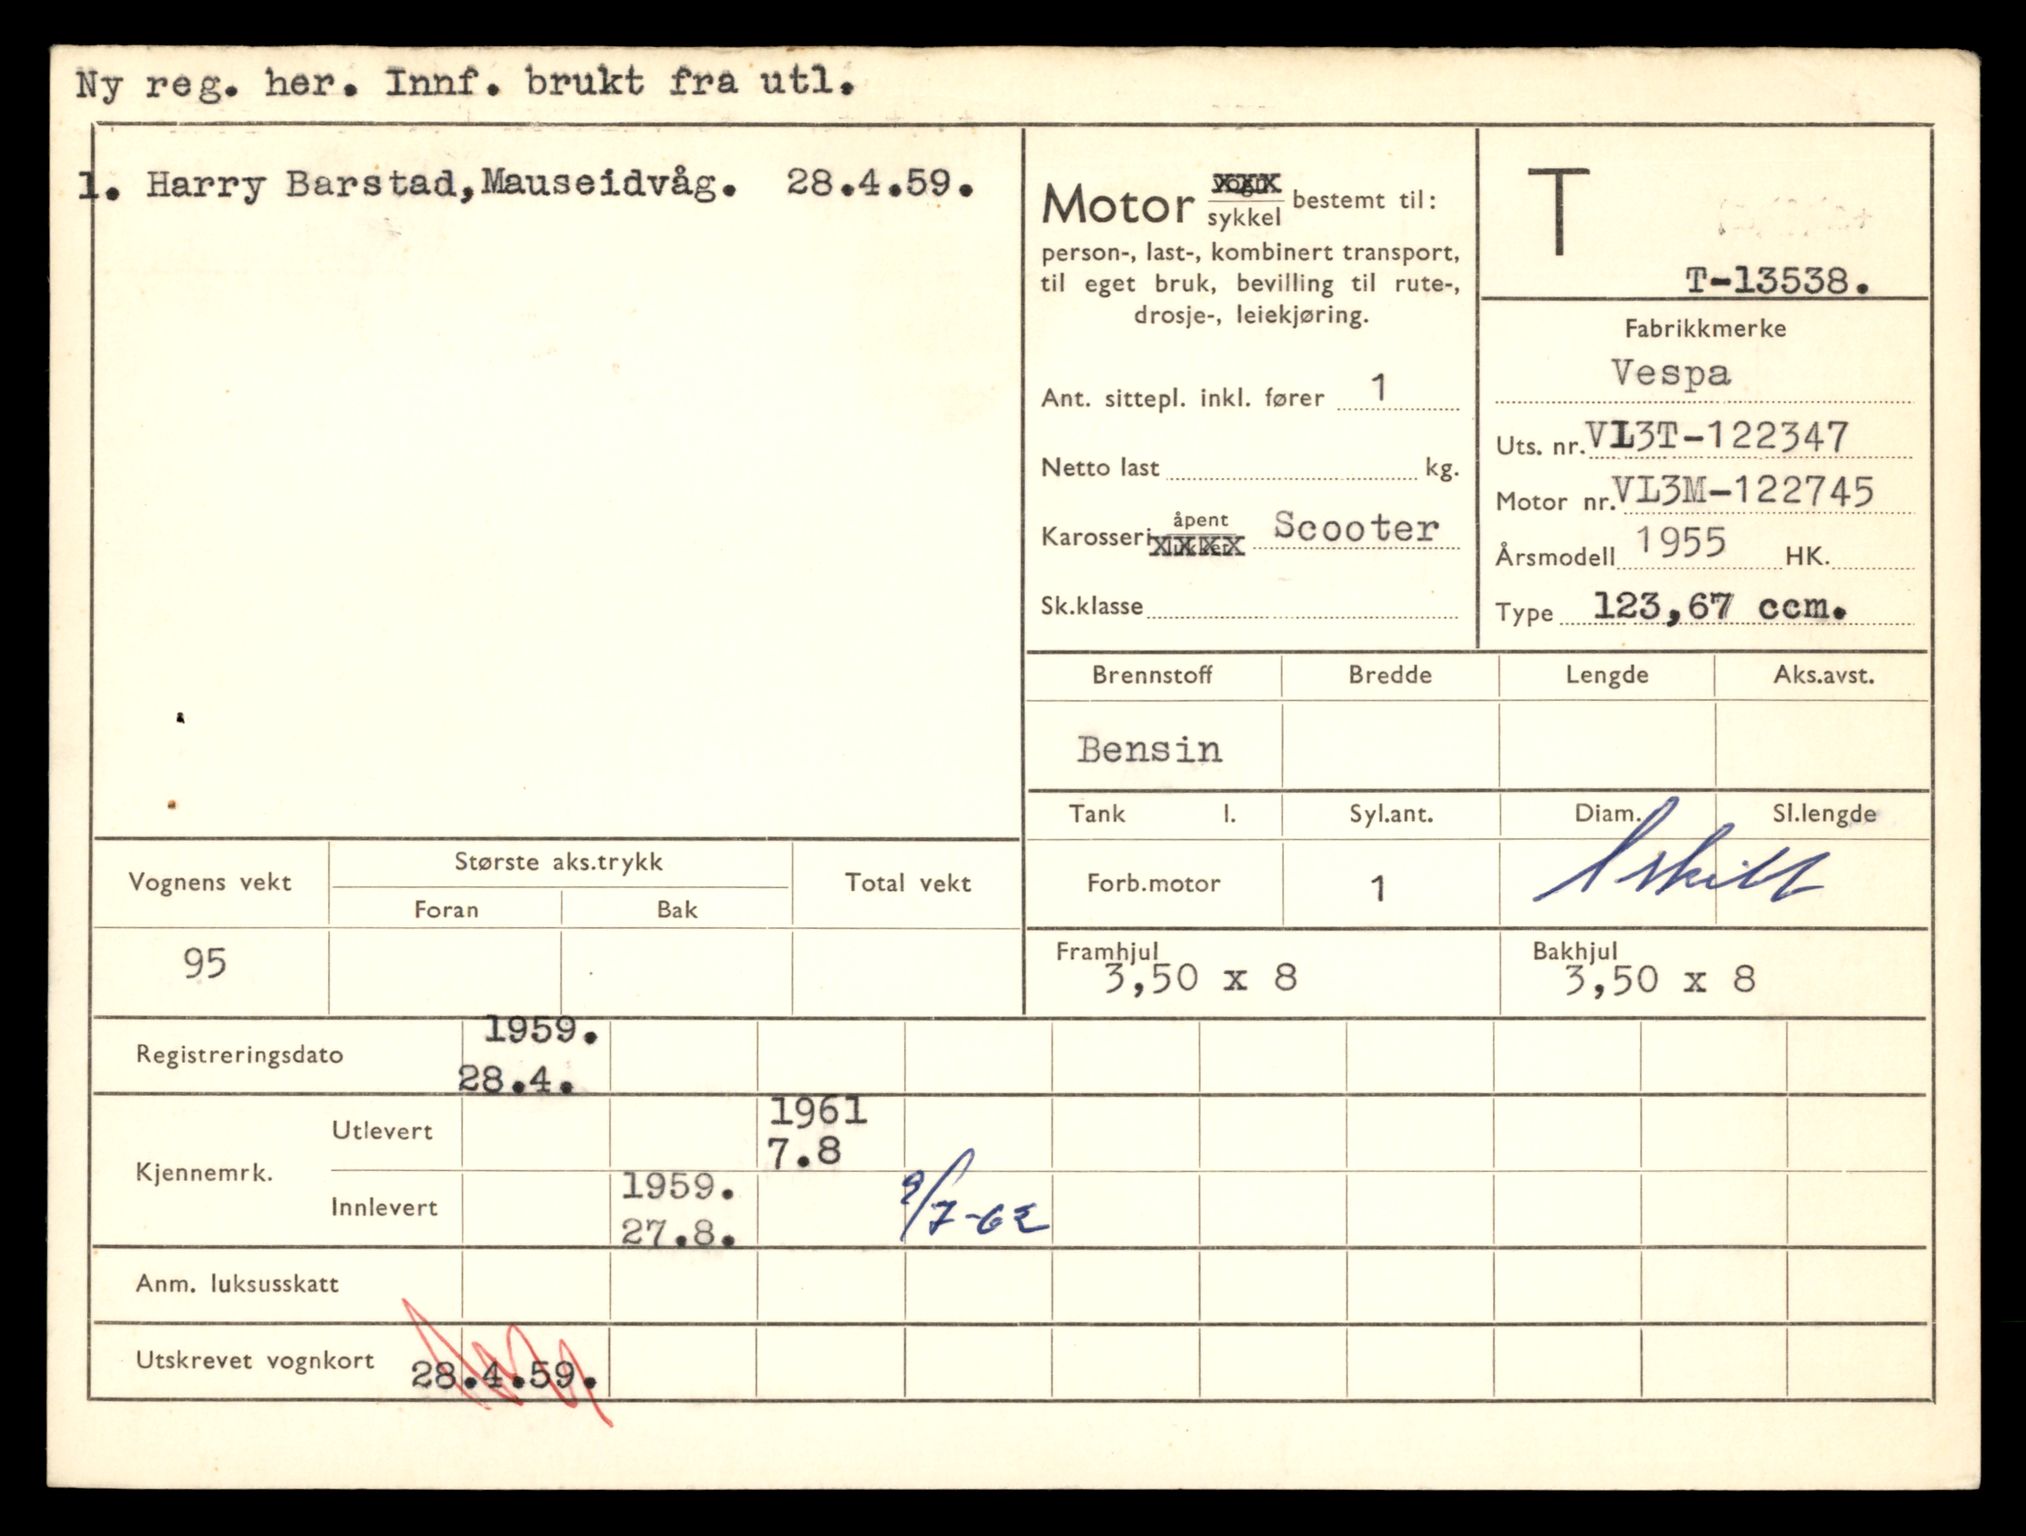 Ny reg. her. Innf. brukt fra utl.
1. Harry Barstad, Mauseidvåg. 28.4.59.
Motor vogn sykkel bestemt til:
person-, last-, kombinert transport,
til eget bruk, bevilling til rute-,
drosje-, leiekjøring.
Ant. sittepl. inkl. fører 1
Netto last kg.
Karosseri åpent lukket Scooter
Sk.klasse
T
T-13538.
Fabrikkmerke
Vespa
Uts. nr. VL3T-122347
Motor nr. VL3M-122745
Årsmodell 1955 HK.
Type 123,67 ccm.
Brennstoff Bredde Lengde Aks.avst.
Bensin
Tank l. Syl.ant. Diam. Sl.lengde
Forb.motor 1 1 skilt
Framhjul Bakhjul
3,50 x 8 3,50 x 8
Vognens vekt Største aks.trykk Total vekt
Foran Bak
95
Registreringsdato 1959.
28.4.
Kjennemrk. Utlevert 1961
7.8
Innlevert 1959. 9/7-62
27.8.
Anm. luksusskatt
Utskrevet vognkort 28.4.59.